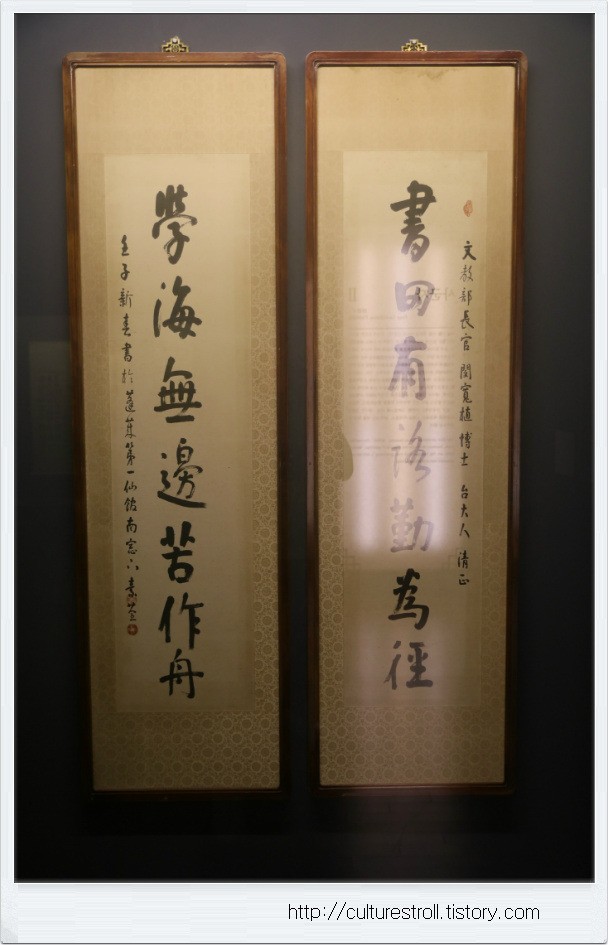 文教部長官 閔寬植 博士 台大人 清正
書田有路勤為徑
學海無邊苦作舟
壬子新春書於蓬萊第一仙館南窓下 素荃
http://culturestroll.tistory.com